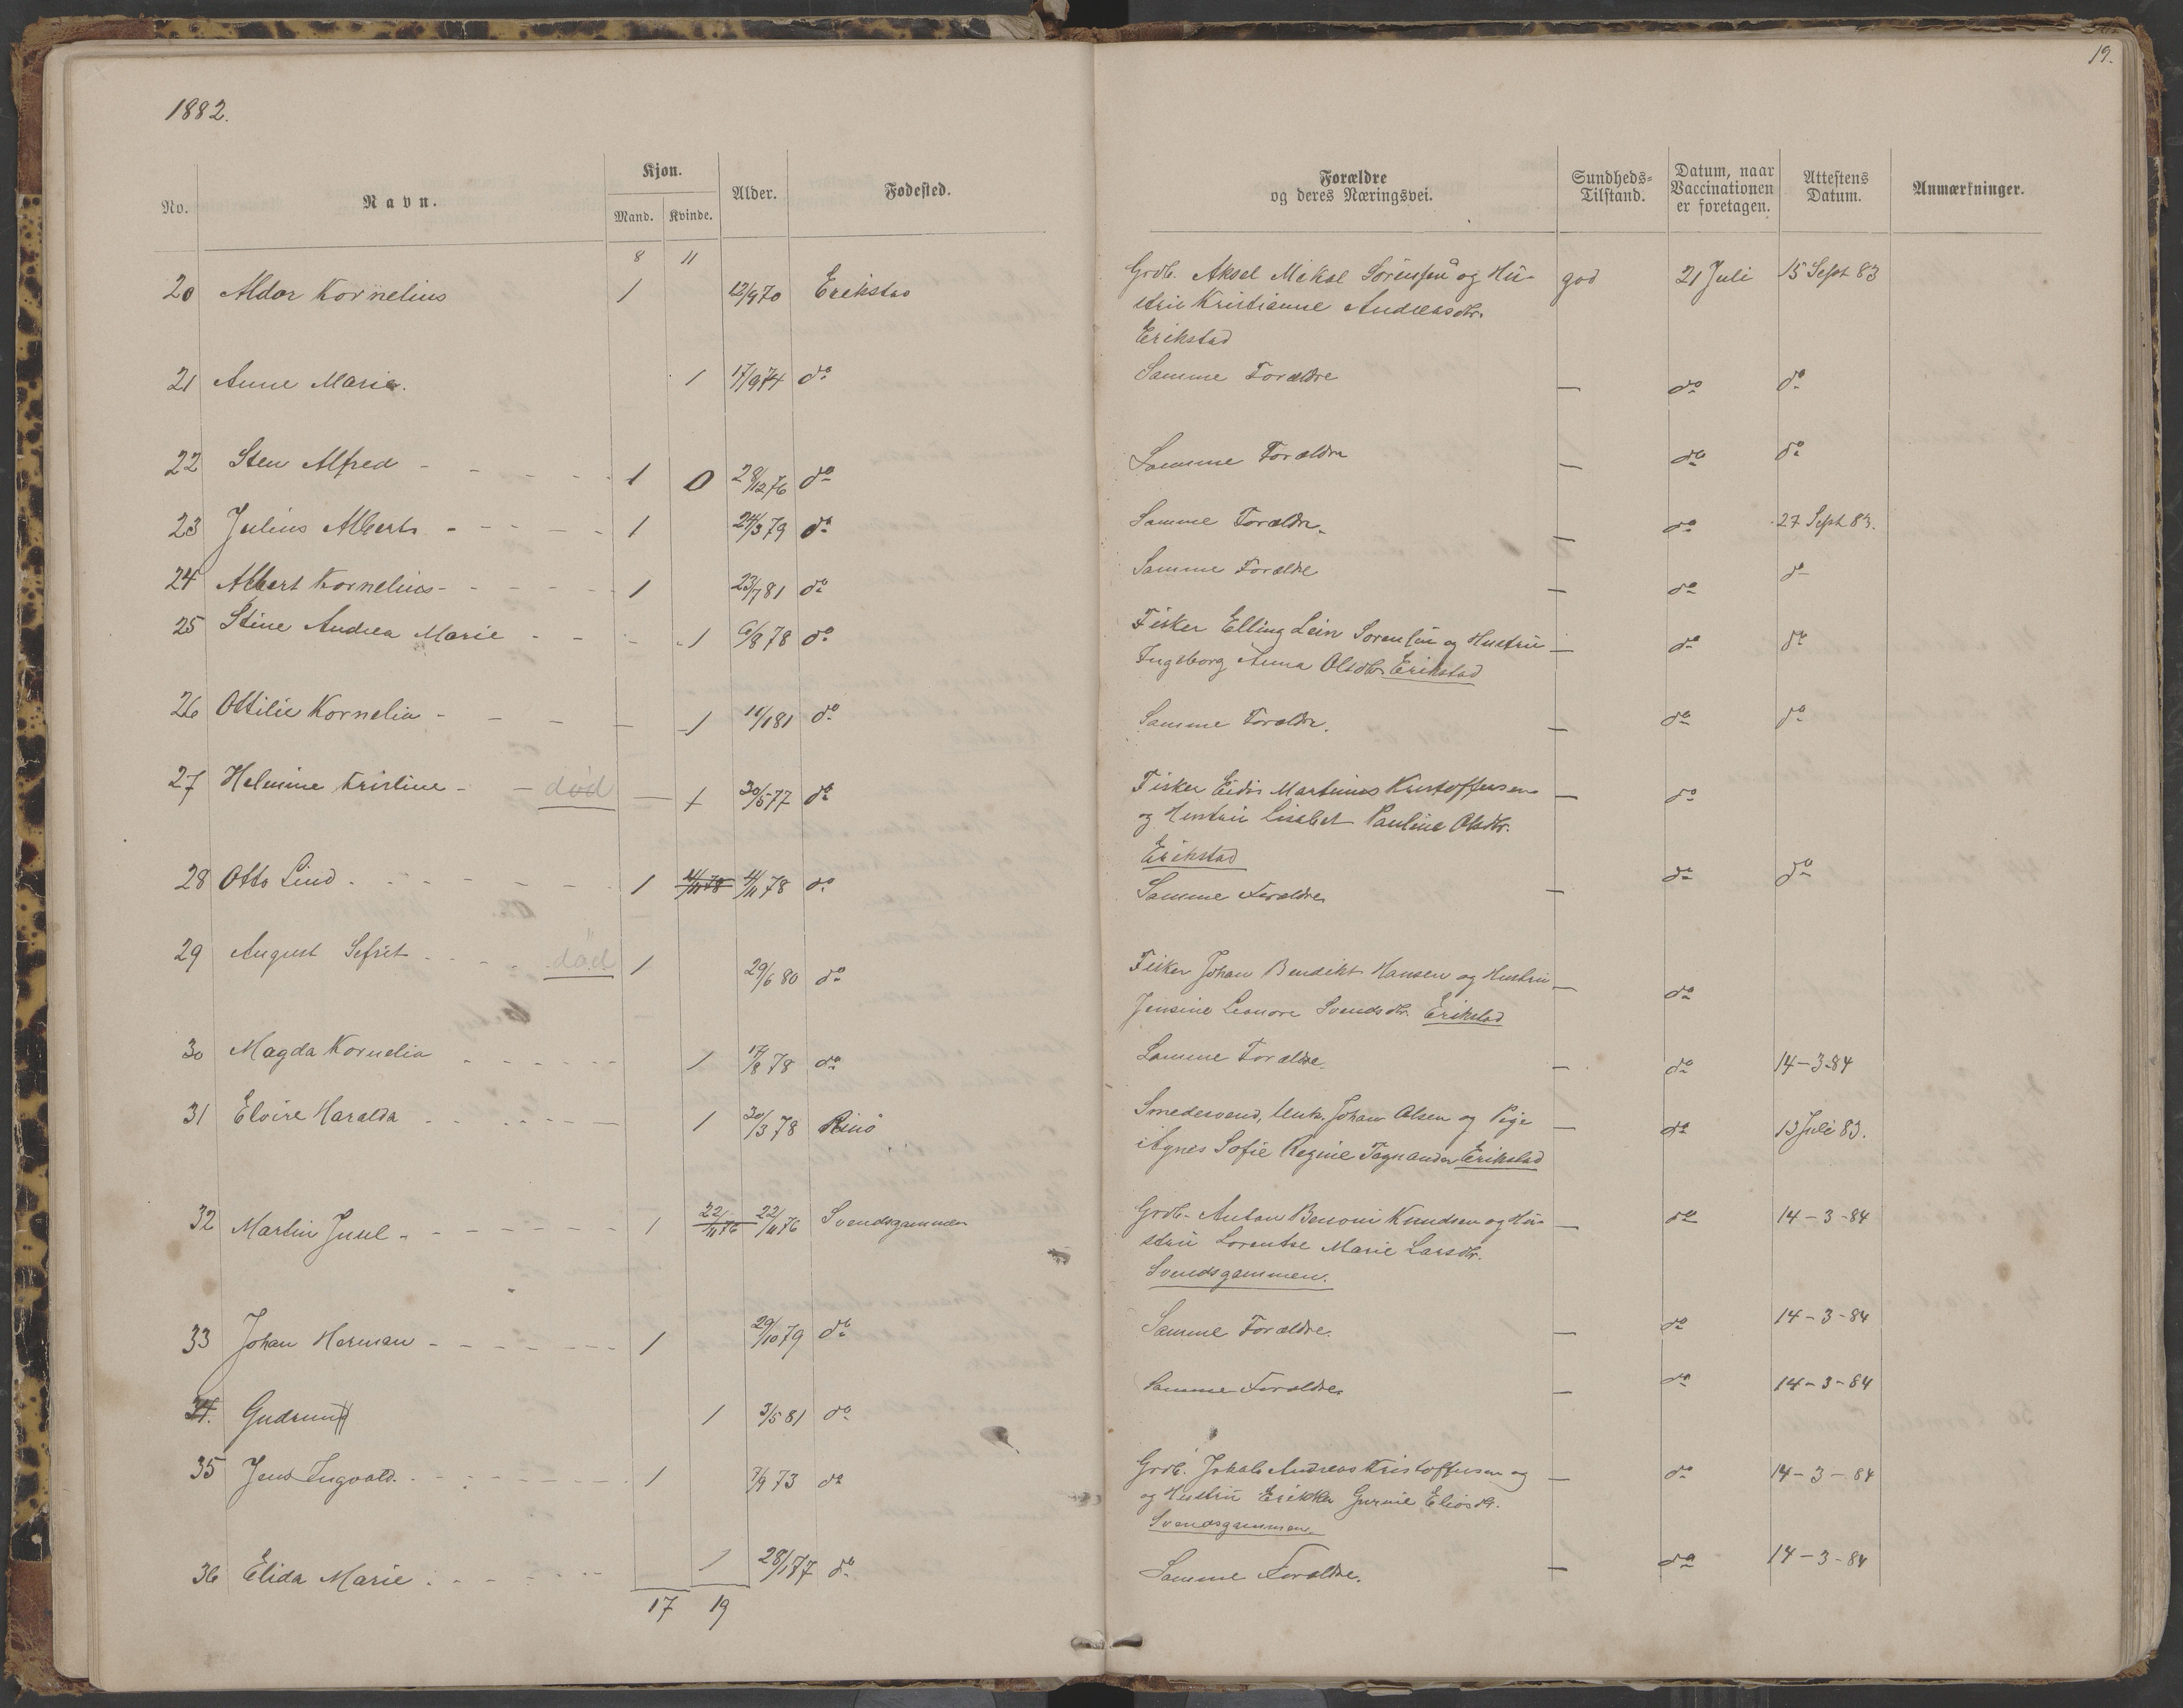 1882.
19.
No. Navn. Kjøn. Mand. Kvinde. Alder. Fødested. Forældre og deres Næringsvei. Sundheds-Tilstand. Datum, naar Vaccinationen er foretagen. Attestens Datum. Anmærkninger.
8 11
20 Aldor Kornelius 1 12/9 70 Erikstad Grdb. Aksel Mikal Sörensen og Hu- god 21 Juli 15 Sept 83
strü Kristianne Andreasdtr.
Erikstad
21 Anne Marie. 1 17/9 74 do Samme Forældre — do do
22 Sten Alfred - - - - 1 0 28/12 76 do Samme Forældre — do do
23 Julius Alberts - - - - - 1 24/3 79 do Samme Forældre. — do 27 Sept 83.
24 Albert Kornelius - - - - - 1 23/7 81 do Samme Forældre — do do
25 Stine Andrea Marie - - - 1 6/8 78 do Fisker Elling Lein Sorensen og Hustrü — do do
Ingeborg Anna Olsdtr Erikstad
26 Ottilie Kornelia - - - - 1 11/1 81 do Samme Forældre. — do do
27 Helmine Kristine - - død — 1 30/5 77 do Fisker Eidis Martinus Kristoffersen — do
og Hustrü Lisabet Pauline Olsdtr.
Erikstad
28 Otto Lind - - - - - - 1 4/11 78 4/11 78 do Samme Forældre — do do
29 August Sefrit - - - - död 1 29/6 80 do Fisker Johan Bendikt Hansen og Hustrü — do
Jensine Leonore Svendsdtr. Erikstad
30 Magda Kornelia - - - - - - 1 17/8 78 do Samme Forældre. — do 14-3-84
31 Elvire Haralda - - - - - - 1 30/3 78 Risö Smedesvend, Unk. Johan Olsen og Pige — do 13 Juli 83.
Agnes Sofie Regine Erikstad
32 Martin Juul - - - - - - 1 22/11 76 22/11 76 Svendsgammen Grdb. Anton Benoni Knudsen og Hu- — do 14-3-84
strü Lorentse Marie Larsdtr.
Svendsgammen.
33 Johan Herman - - - - - - 1 29/10 79 do Samme Forældre. — do 14-3-84
34. Gudrun 1 3/5 81 do Samme Forældre — do 14-3-84
35 Jens Ingvald. - - - - - - 1 7/9 73 do Grdb. Jakob Andreas Kristoffersen og — do 14-3-84
og Hustrü Erikka Gurine Eliasdtr.
Svendsgammen.
36 Elida Marie - - - - - - 1 28/1 77 do Samme Forældre. — do 14-3-84
17 19